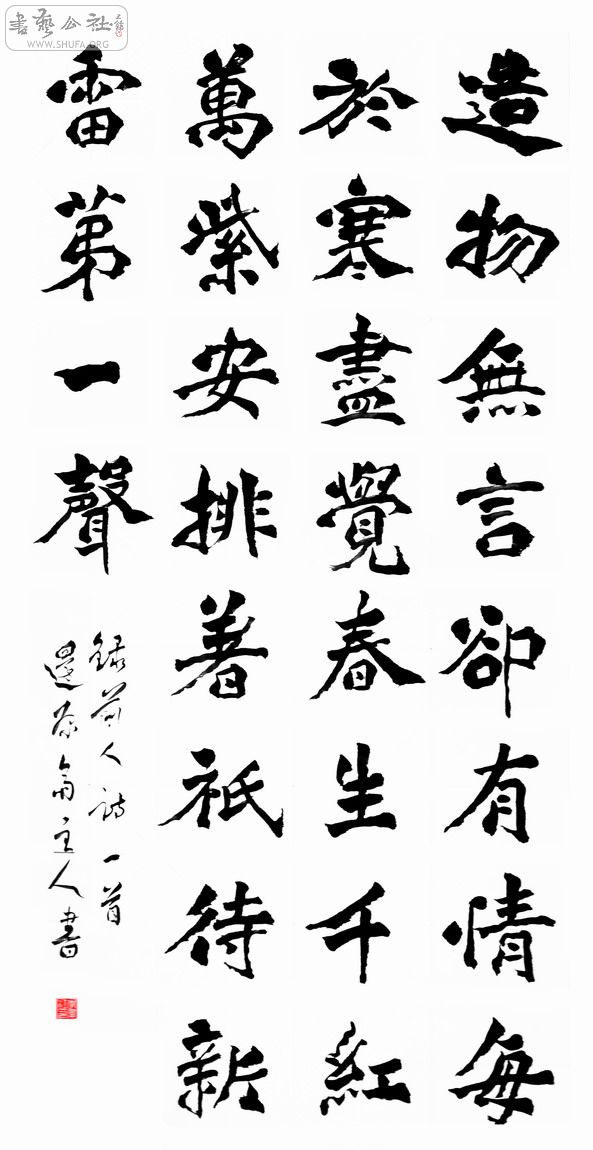 造物無言卻有情每
於寒盡覺春生千紅
萬紫安排著祗待新
雷第一聲
錄前人詩一首
主人書
書藝公社
WWW.SHUFA.ORG